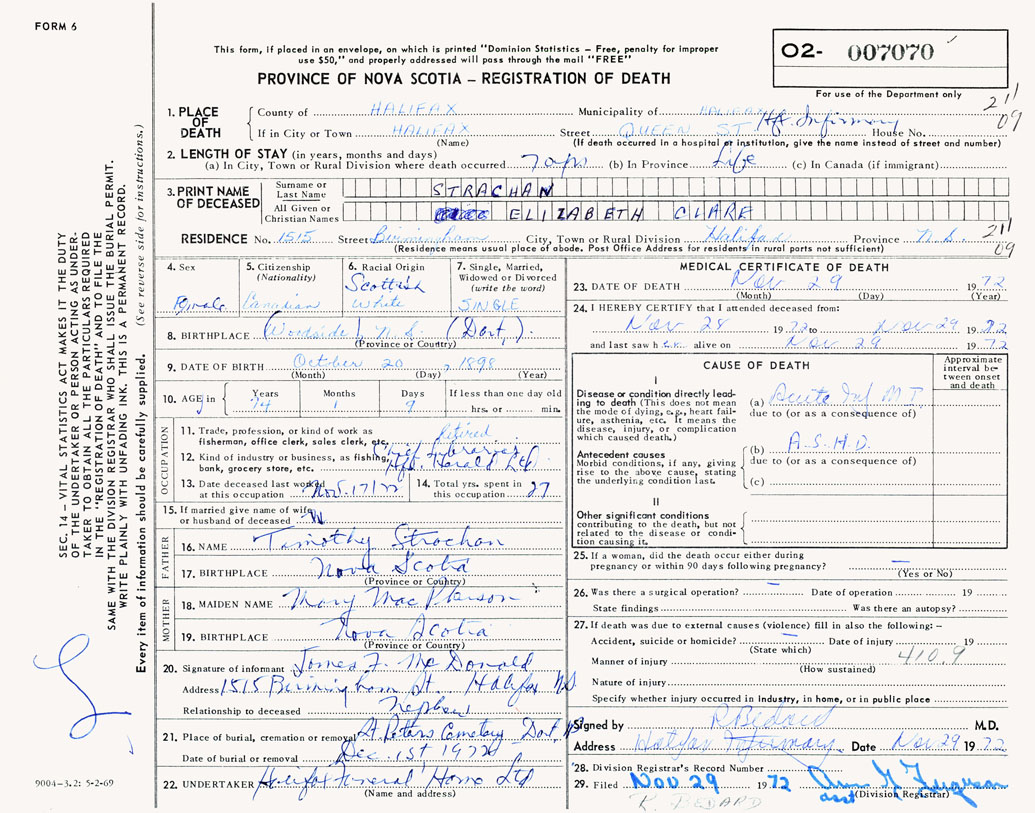 FORM 6
This form, if placed in an envelope, on which is printed "Dominion Statistics – Free, penalty for improper
use $50," and properly addressed will pass through the mail "FREE"
PROVINCE OF NOVA SCOTIA – REGISTRATION OF DEATH
02- 007070
For use of the Department only
211
09
1. PLACE OF DEATH
County of HALIFAX Municipality of HALIFAX
If in City or Town HALIFAX Street QUEEN ST Hfx. Infirmary House No.
(Name) (If death occurred in a hospital or institution, give the name instead of street and number)
2. LENGTH OF STAY (in years, months and days)
(a) In City, Town or Rural Division where death occurred (b) In Province Life (c) In Canada (if immigrant)
3. PRINT NAME OF DECEASED
Surname or Last Name STRACHAN
All Given or Christian Names ELIZABETH CLARE
RESIDENCE No. 1515 Street Birmingham City, Town or Rural Division Halifax Province N.S.
211
09
(Residence means usual place of abode. Post Office Address for residents in rural parts not sufficient)
4. Sex Female
5. Citizenship (Nationality) Canadian
6. Racial Origin Scottish White
7. Single, Married, Widowed or Divorced (write the word) SINGLE
8. BIRTHPLACE (Woodside) N.S. (Dart.)
(Province or Country)
9. DATE OF BIRTH October 20, 1898
(Month) (Day) (Year)
10. AGE in Years 74 Months 1 Days 9 If less than one day old hrs. or min.
OCCUPATION
11. Trade, profession, or kind of work as fisherman, office clerk, sales clerk, etc. retired
Chief Librarian
12. Kind of industry or business, as fishing, bank, grocery store, etc. Hfx. Herald Ltd
13. Date deceased last worked at this occupation Nov. 17/72
14. Total yrs. spent in this occupation 27
15. If married give name of wife or husband of deceased
FATHER
16. NAME Timothy Strachan
17. BIRTHPLACE Nova Scotia
(Province or Country)
MOTHER
18. MAIDEN NAME Mary MacPherson
19. BIRTHPLACE Nova Scotia
(Province or Country)
20. Signature of informant James F. McDonald
Address 1515 Birmingham St. Halifax NS
Relationship to deceased Nephew
21. Place of burial, cremation or removal St Peters Cemetery Dart. NS
Date of burial or removal Dec. 1st 1972
22. UNDERTAKER Halifax Funeral Home Ltd
(Name and address)
MEDICAL CERTIFICATE OF DEATH
23. DATE OF DEATH Nov 29 1972
(Month) (Day) (Year)
24. I HEREBY CERTIFY that I attended deceased from:
Nov 28 1972 to Nov 29 1972
and last saw her alive on Nov 29 1972
CAUSE OF DEATH
Approximate interval between onset and death
I
Disease or condition directly leading to death (This does not mean the mode of dying, e.g., heart failure, asthenia, etc. It means the disease, injury, or complication which caused death.)
(a) Acute Inf M T
due to (or as a consequence of)
Antecedent causes
Morbid conditions, if any, giving rise to the above cause, stating the underlying condition last.
(b) A.S.H.D.
due to (or as a consequence of)
(c)
II
Other significant conditions
contributing to the death, but not related to the disease or condition causing it.
25. If a woman, did the death occur either during
pregnancy or within 90 days following pregnancy? –
(Yes or No)
26. Was there a surgical operation? – Date of operation 19
State findings Was there an autopsy?
27. If death was due to external causes (violence) fill in also the following: –
Accident, suicide or homicide? – Date of injury 19
(State which)
Manner of injury 410.9
(How sustained)
Nature of injury
Specify whether injury occurred in industry, in home, or in public place
Signed by R Bedard M.D.
Address Halifax Infirmary Date Nov 29 1972
28. Division Registrar's Record Number
29. Filed Nov 29 1972 Ferguson
asst (Division Registrar)
K. BEDARD
SEC. 14 – VITAL STATISTICS ACT MAKES IT THE DUTY
OF THE UNDERTAKER OR PERSON ACTING AS UNDER-
TAKER TO OBTAIN ALL THE PARTICULARS REQUIRED
IN THE "REGISTRATION OF DEATH" AND TO FILE THE
SAME WITH THE DIVISION REGISTRAR WHO SHALL ISSUE THE BURIAL PERMIT.
WRITE PLAINLY WITH UNFADING INK. THIS IS A PERMANENT RECORD.
Every item of information should be carefully supplied. (See reverse side for instructions.)
9004-3.2: 5-2-69